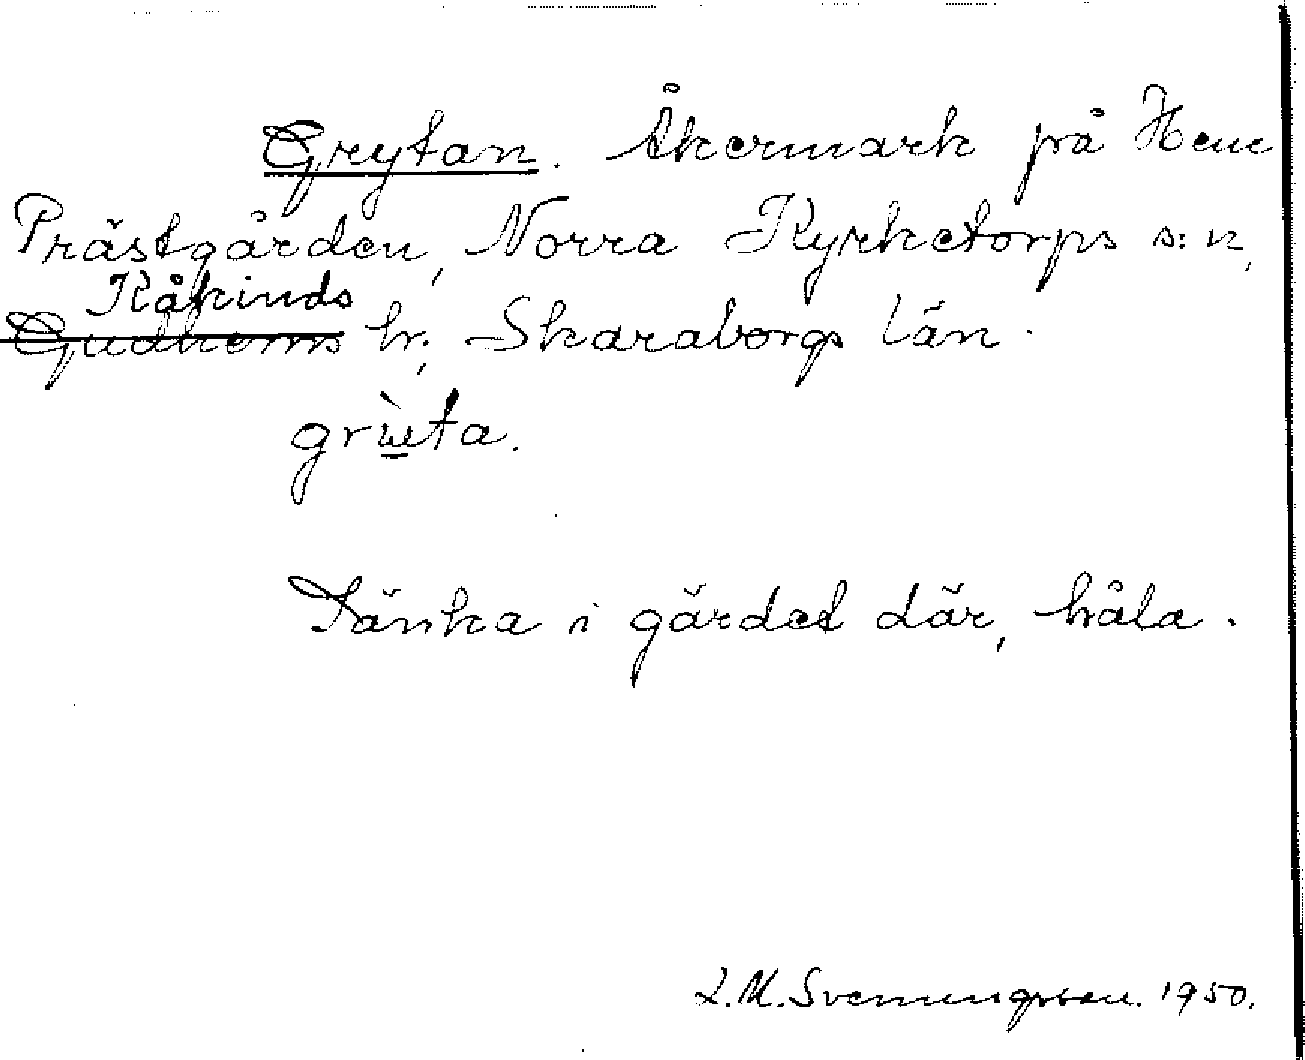 Grytan. Åkermark på Hem
Prästgården, Norra Kyrketorps s:n,
Kåkinds
Gudhems hr., Skaraborgs län.
Sänka i gärdet där, håla.
L.M. Svenungsson. 1950.